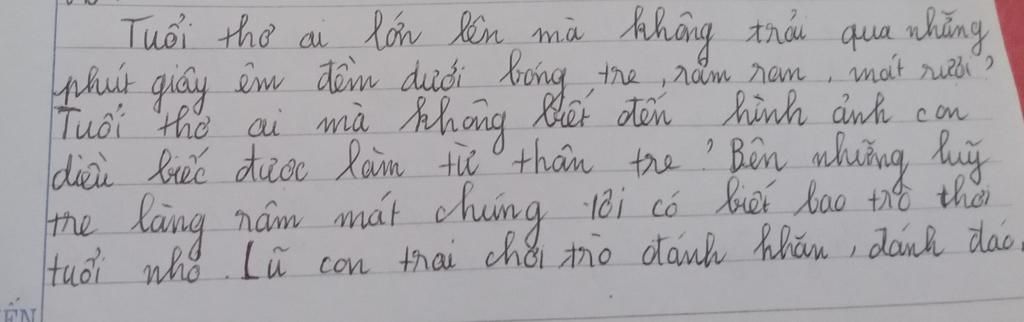 Tuổi thơ ai lớn lên mà không trải qua những
phút giây êm đềm dưới bóng tre, râm ran, mát rười?
Tuổi thơ ai mà không biết đến hình ảnh con
diều biếc được làm từ thân tre? Bên những luỹ
tre làng râm mát chúng tôi có biết bao trò thơi
tuổi nhỏ. Lũ con trai chơi trò đánh khăn, đánh đáo,
ẾN